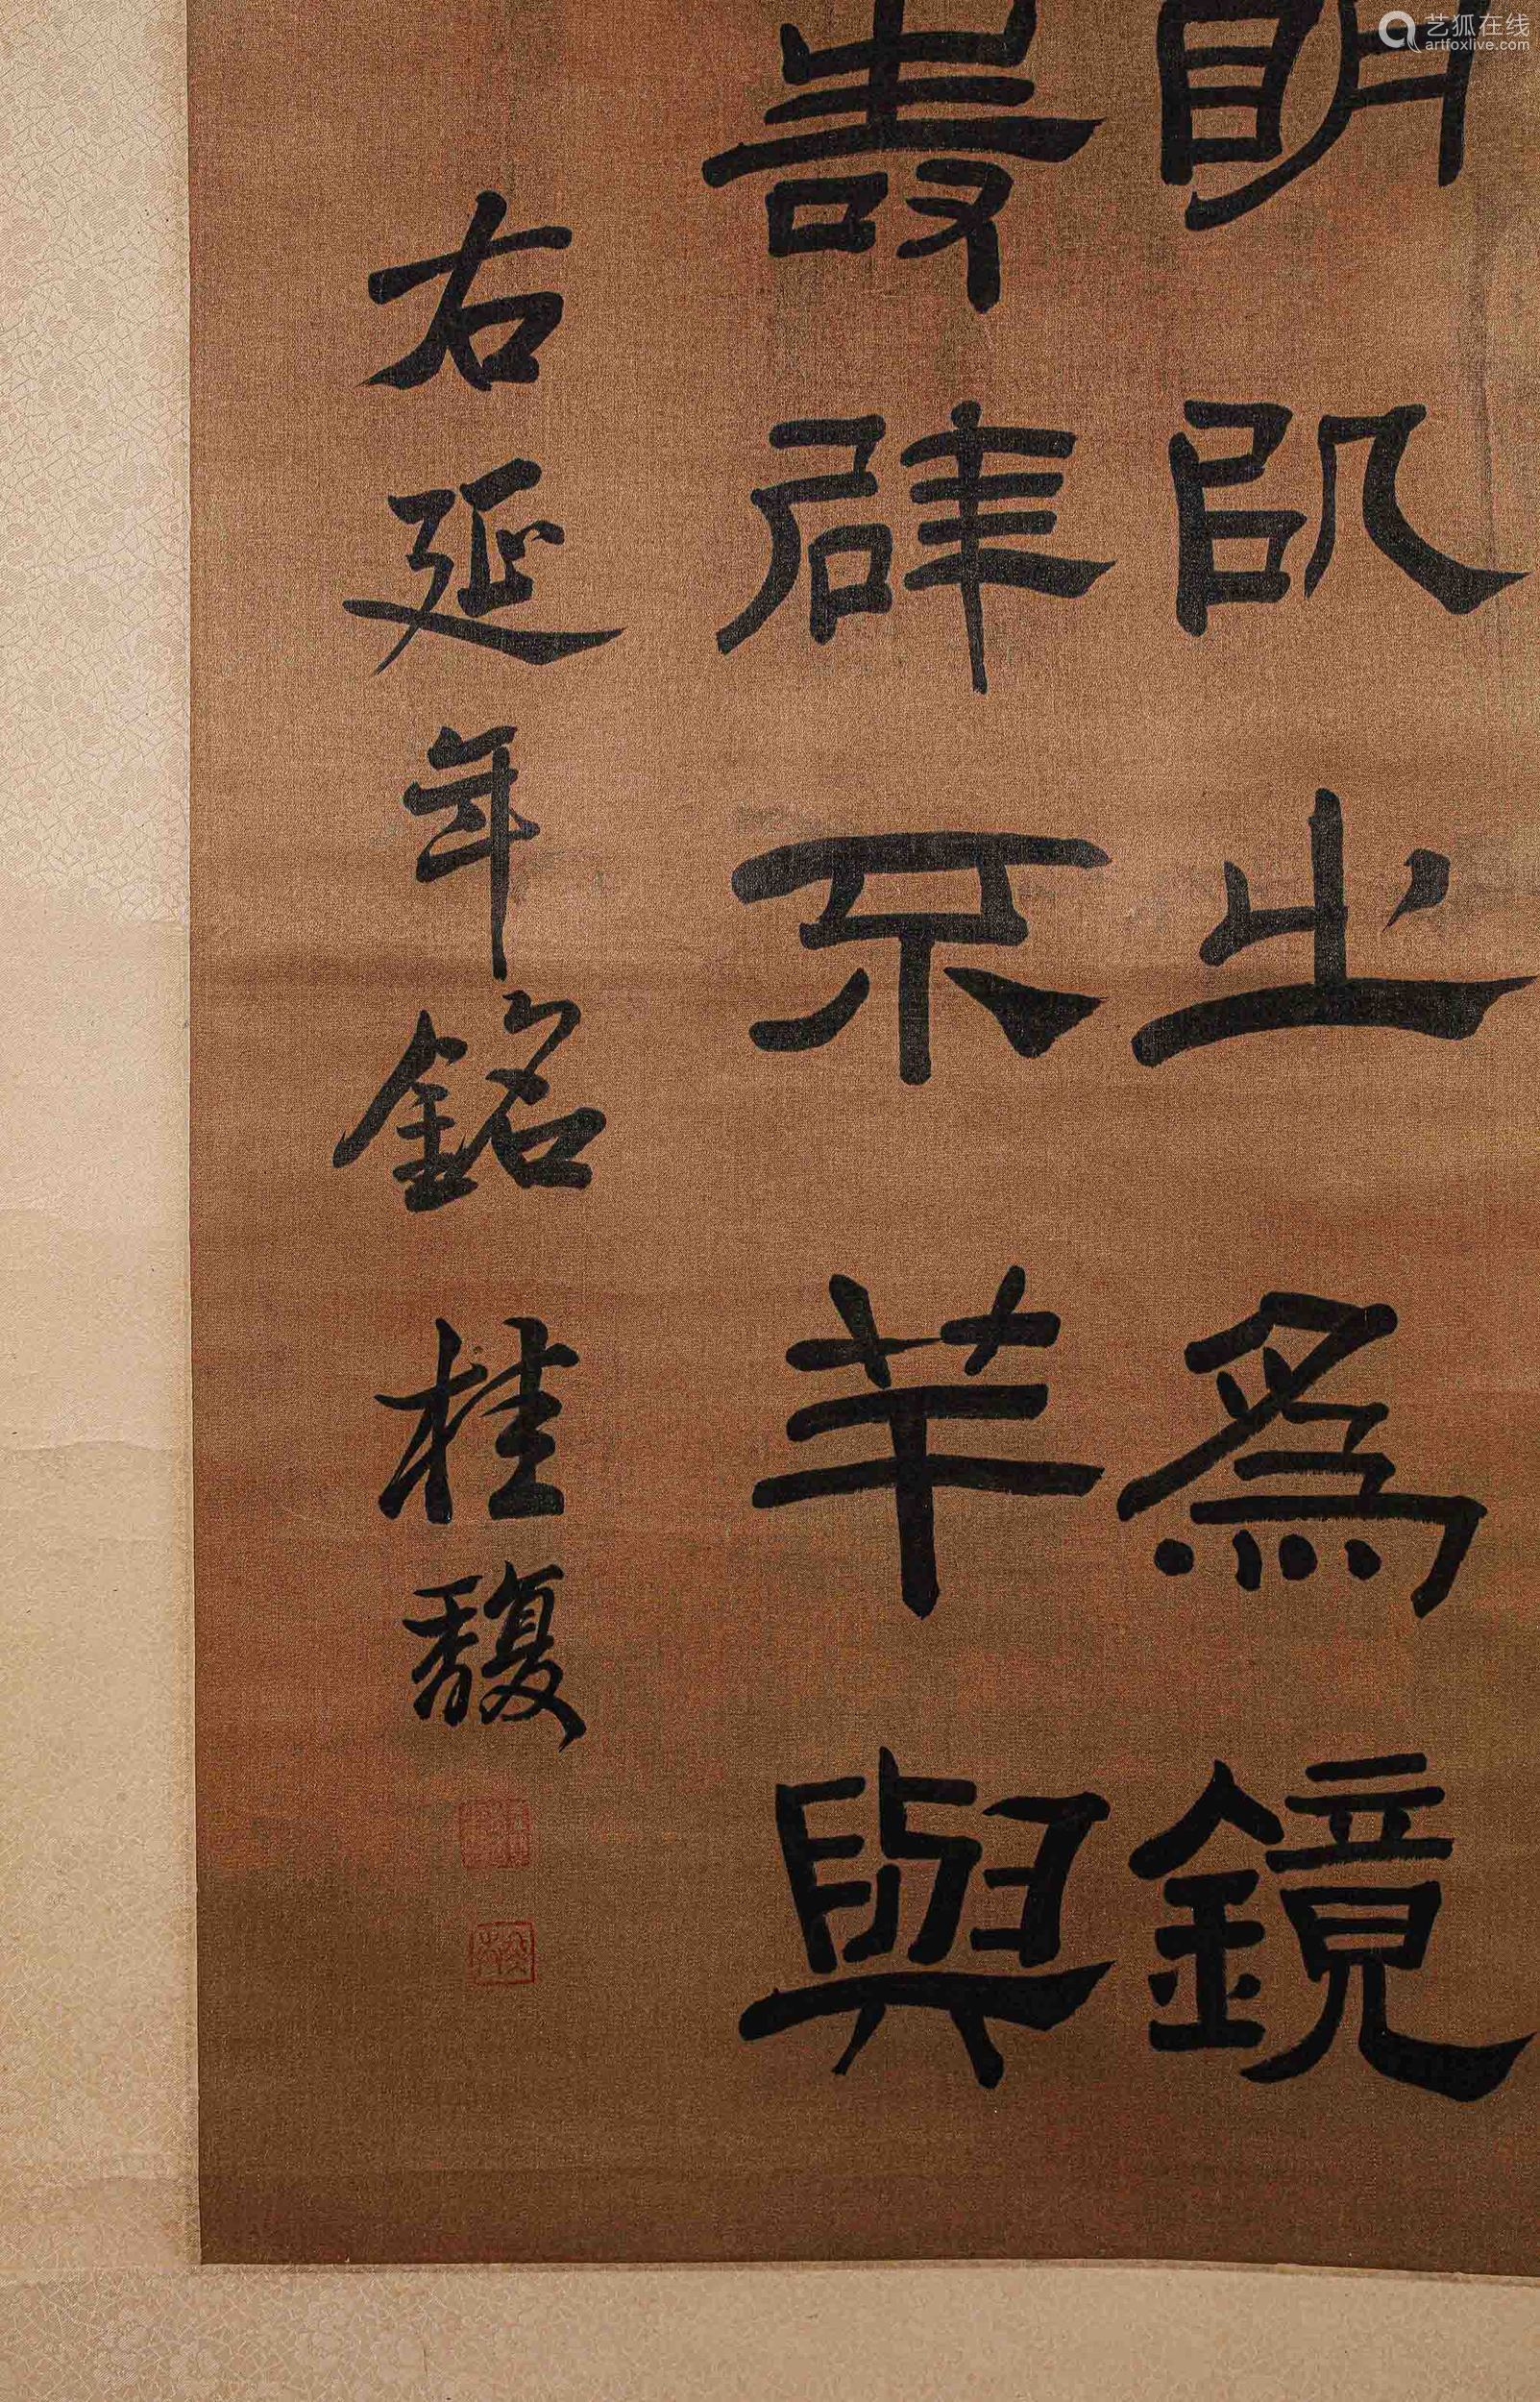 艺狐在线
artfoxlive.com
明以之為鏡
壽辟不羊與
右延年銘 桂馥